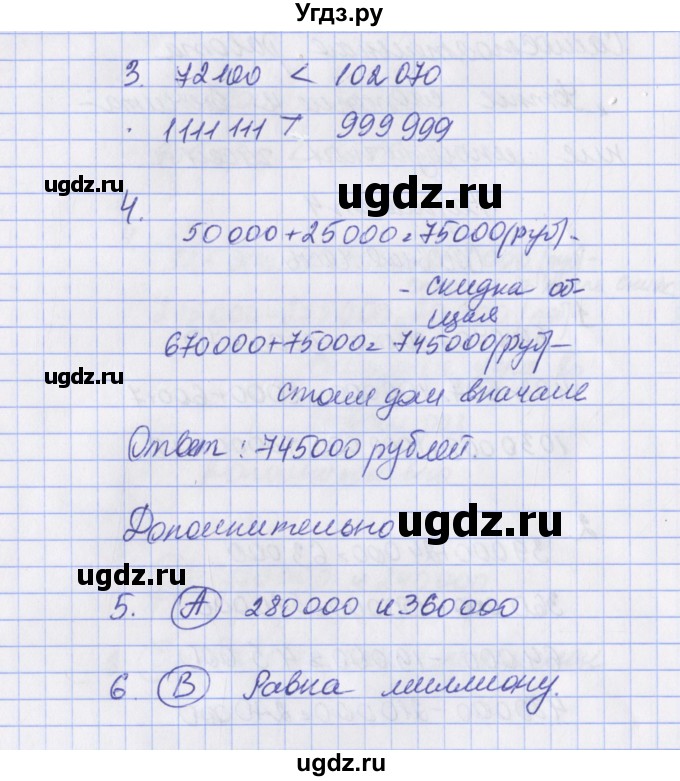 Угдз.ру
3. 72100 < 102070
. 1111 111 > 999 999
ugdz.ru
ugdz.ru
4.
50000+25000=75000(руб)-
- скидка об-
щая
670000+75000= 745000(руб)-
ugdz.ru
стоил дом вначале
Ответ: 745000 рублей.
Дополнительно
ugdz.ru
ugdz.ru
5. А 280000 и 360000
6. В Равна миллиону.
ugdz.ru